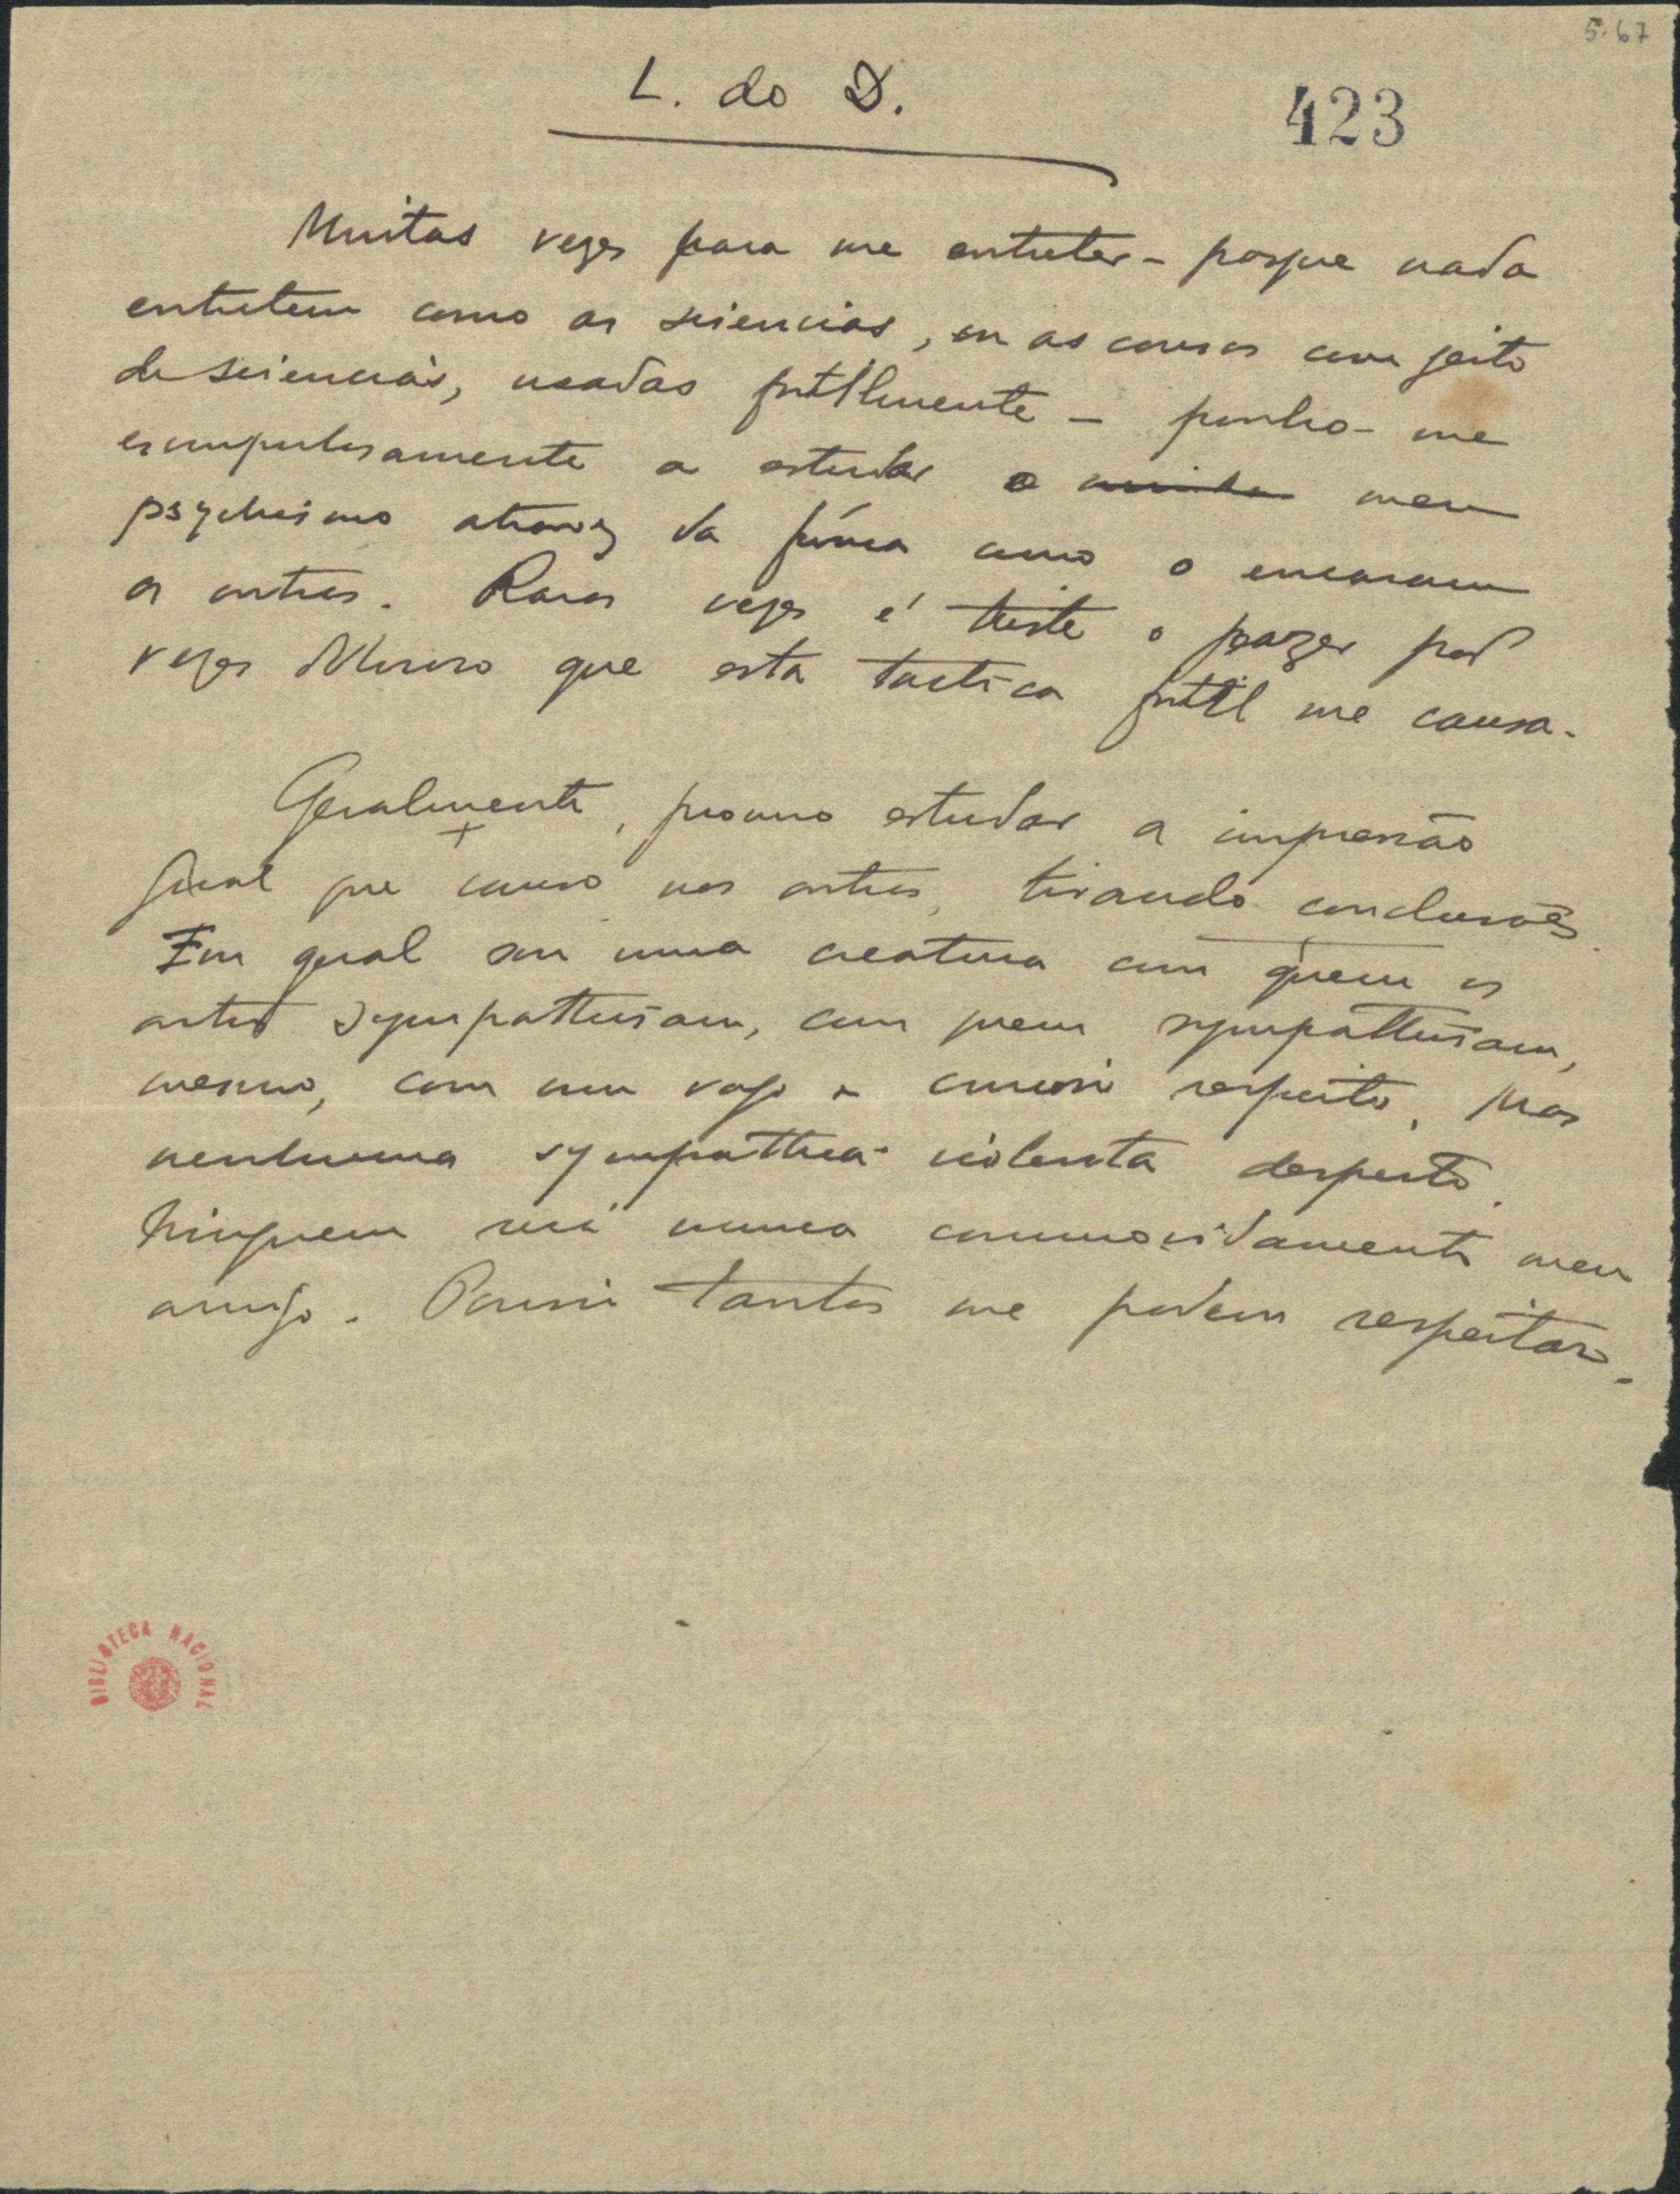 5-67
L. do D.
423
Muitas vezes para me entreter — porque nada
entretem como as sciencias, ou as cousas com geito
de sciencias, usadas futilmente — ponho-me
escrupulosamente a estudar o minha meu
psychismo atravez da fórma como o encaram
os outros. Raras vezes é triste o prazer, por
vezes doloroso que esta tactica futil me causa.
Geralmente, procuro estudar a impressão
geral que causo nos outros, tirando conclusões.
Em geral sou uma creatura com quem os
outros sympathisam, com quem sympathisam,
mesmo, com um vago e curioso respeito. Mas
nenhuma sympathia violenta desperto.
Ninguem será nunca commovidamente meu
amigo. Porisso tantos me podem respeitar.
BIBLIOTECA NACIONAL